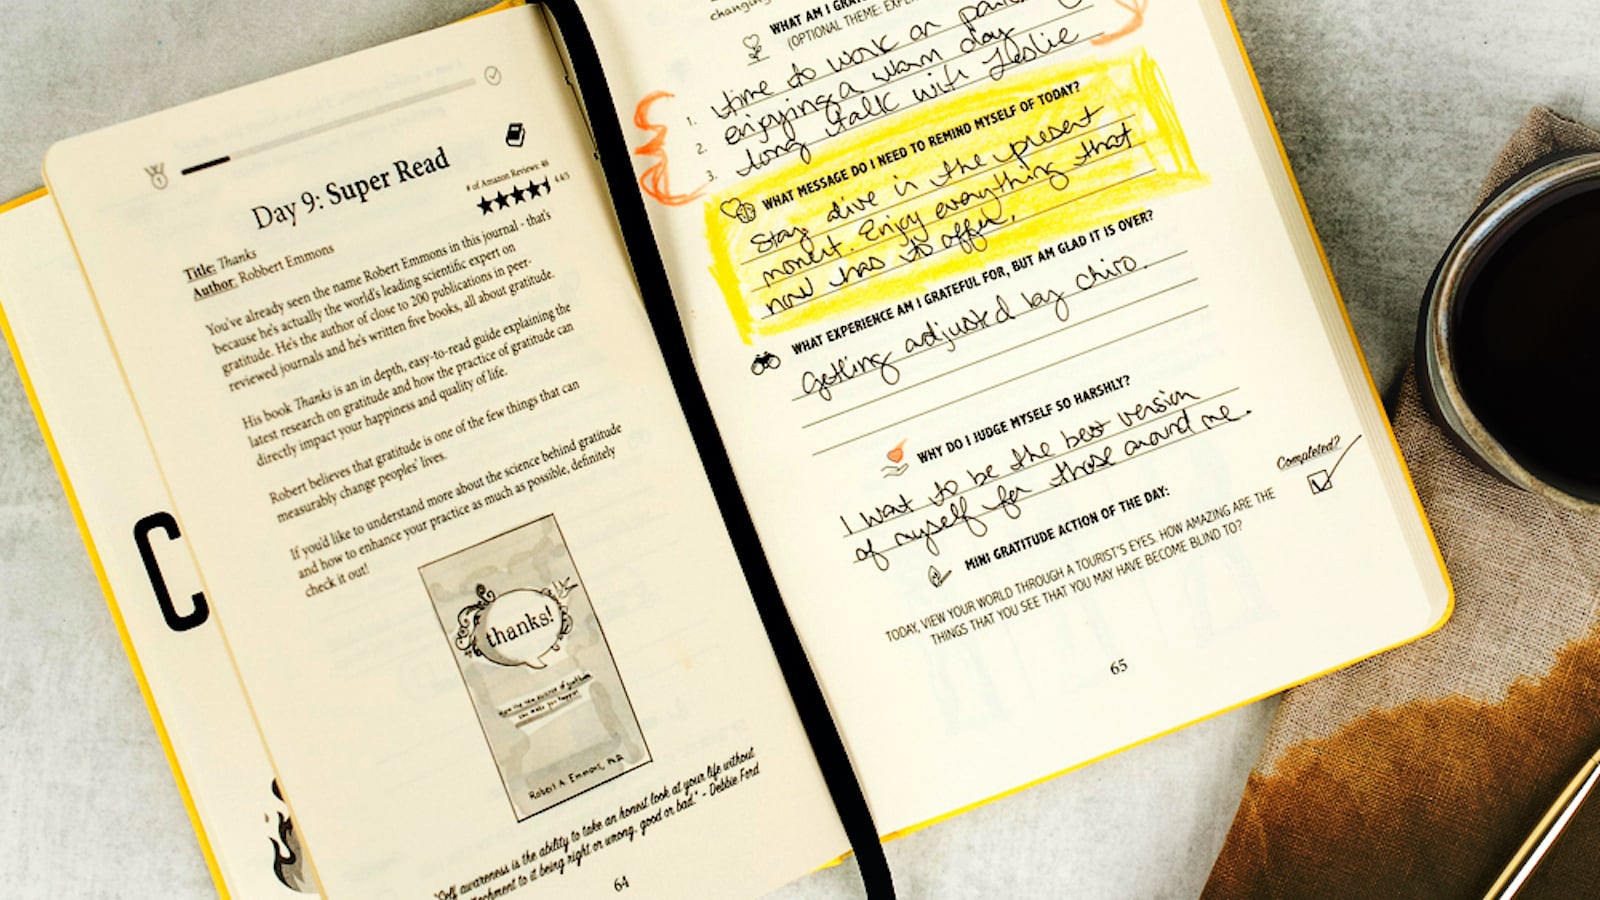 Day 9: Super Read
# of Amazon Reviews: 48
4.4/5
Title: Thanks
Author: Robbert Emmons
You've already seen the name Robert Emmons in this journal - that's
because he's actually the world's leading scientific expert on
gratitude. He's the author of close to 200 publications in peer-
reviewed journals and he's written five books, all about gratitude.
His book Thanks is an in depth, easy-to-read guide explaining the
latest research on gratitude and how the practice of gratitude can
directly impact your happiness and quality of life.
Robert believes that gratitude is one of the few things that can
measurably change peoples' lives.
If you'd like to understand more about the science behind gratitude
and how to enhance your practice as much as possible, definitely
check it out!
thanks!
How the new science of gratitude
can make you happier
Robert A. Emmons, Ph.D.
"Self awareness is the ability to take an honest look at your life without
attachment to it being right or wrong, good or bad." - Debbie Ford
64
C
changing
WHAT AM I GRAT
(OPTIONAL THEME: EXPE
1. time to work on
2. enjoying a warm day
3. long talk with Leslie
WHAT MESSAGE DO I NEED TO REMIND MYSELF OF TODAY?
Stay alive in the present
moment. Enjoy everything that
now has to offer.
WHAT EXPERIENCE AM I GRATEFUL FOR, BUT AM GLAD IT IS OVER?
getting adjusted by chiro.
WHY DO I JUDGE MYSELF SO HARSHLY?
I want to be the best version
of myself for those around me.
Completed?
MINI GRATITUDE ACTION OF THE DAY:
TODAY, VIEW YOUR WORLD THROUGH A TOURIST'S EYES. HOW AMAZING ARE THE
THINGS THAT YOU SEE THAT YOU MAY HAVE BECOME BLIND TO?
65